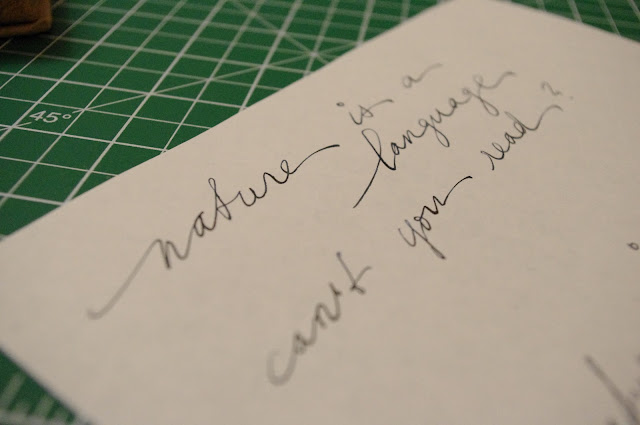 45°
nature is a
language
can't you read?